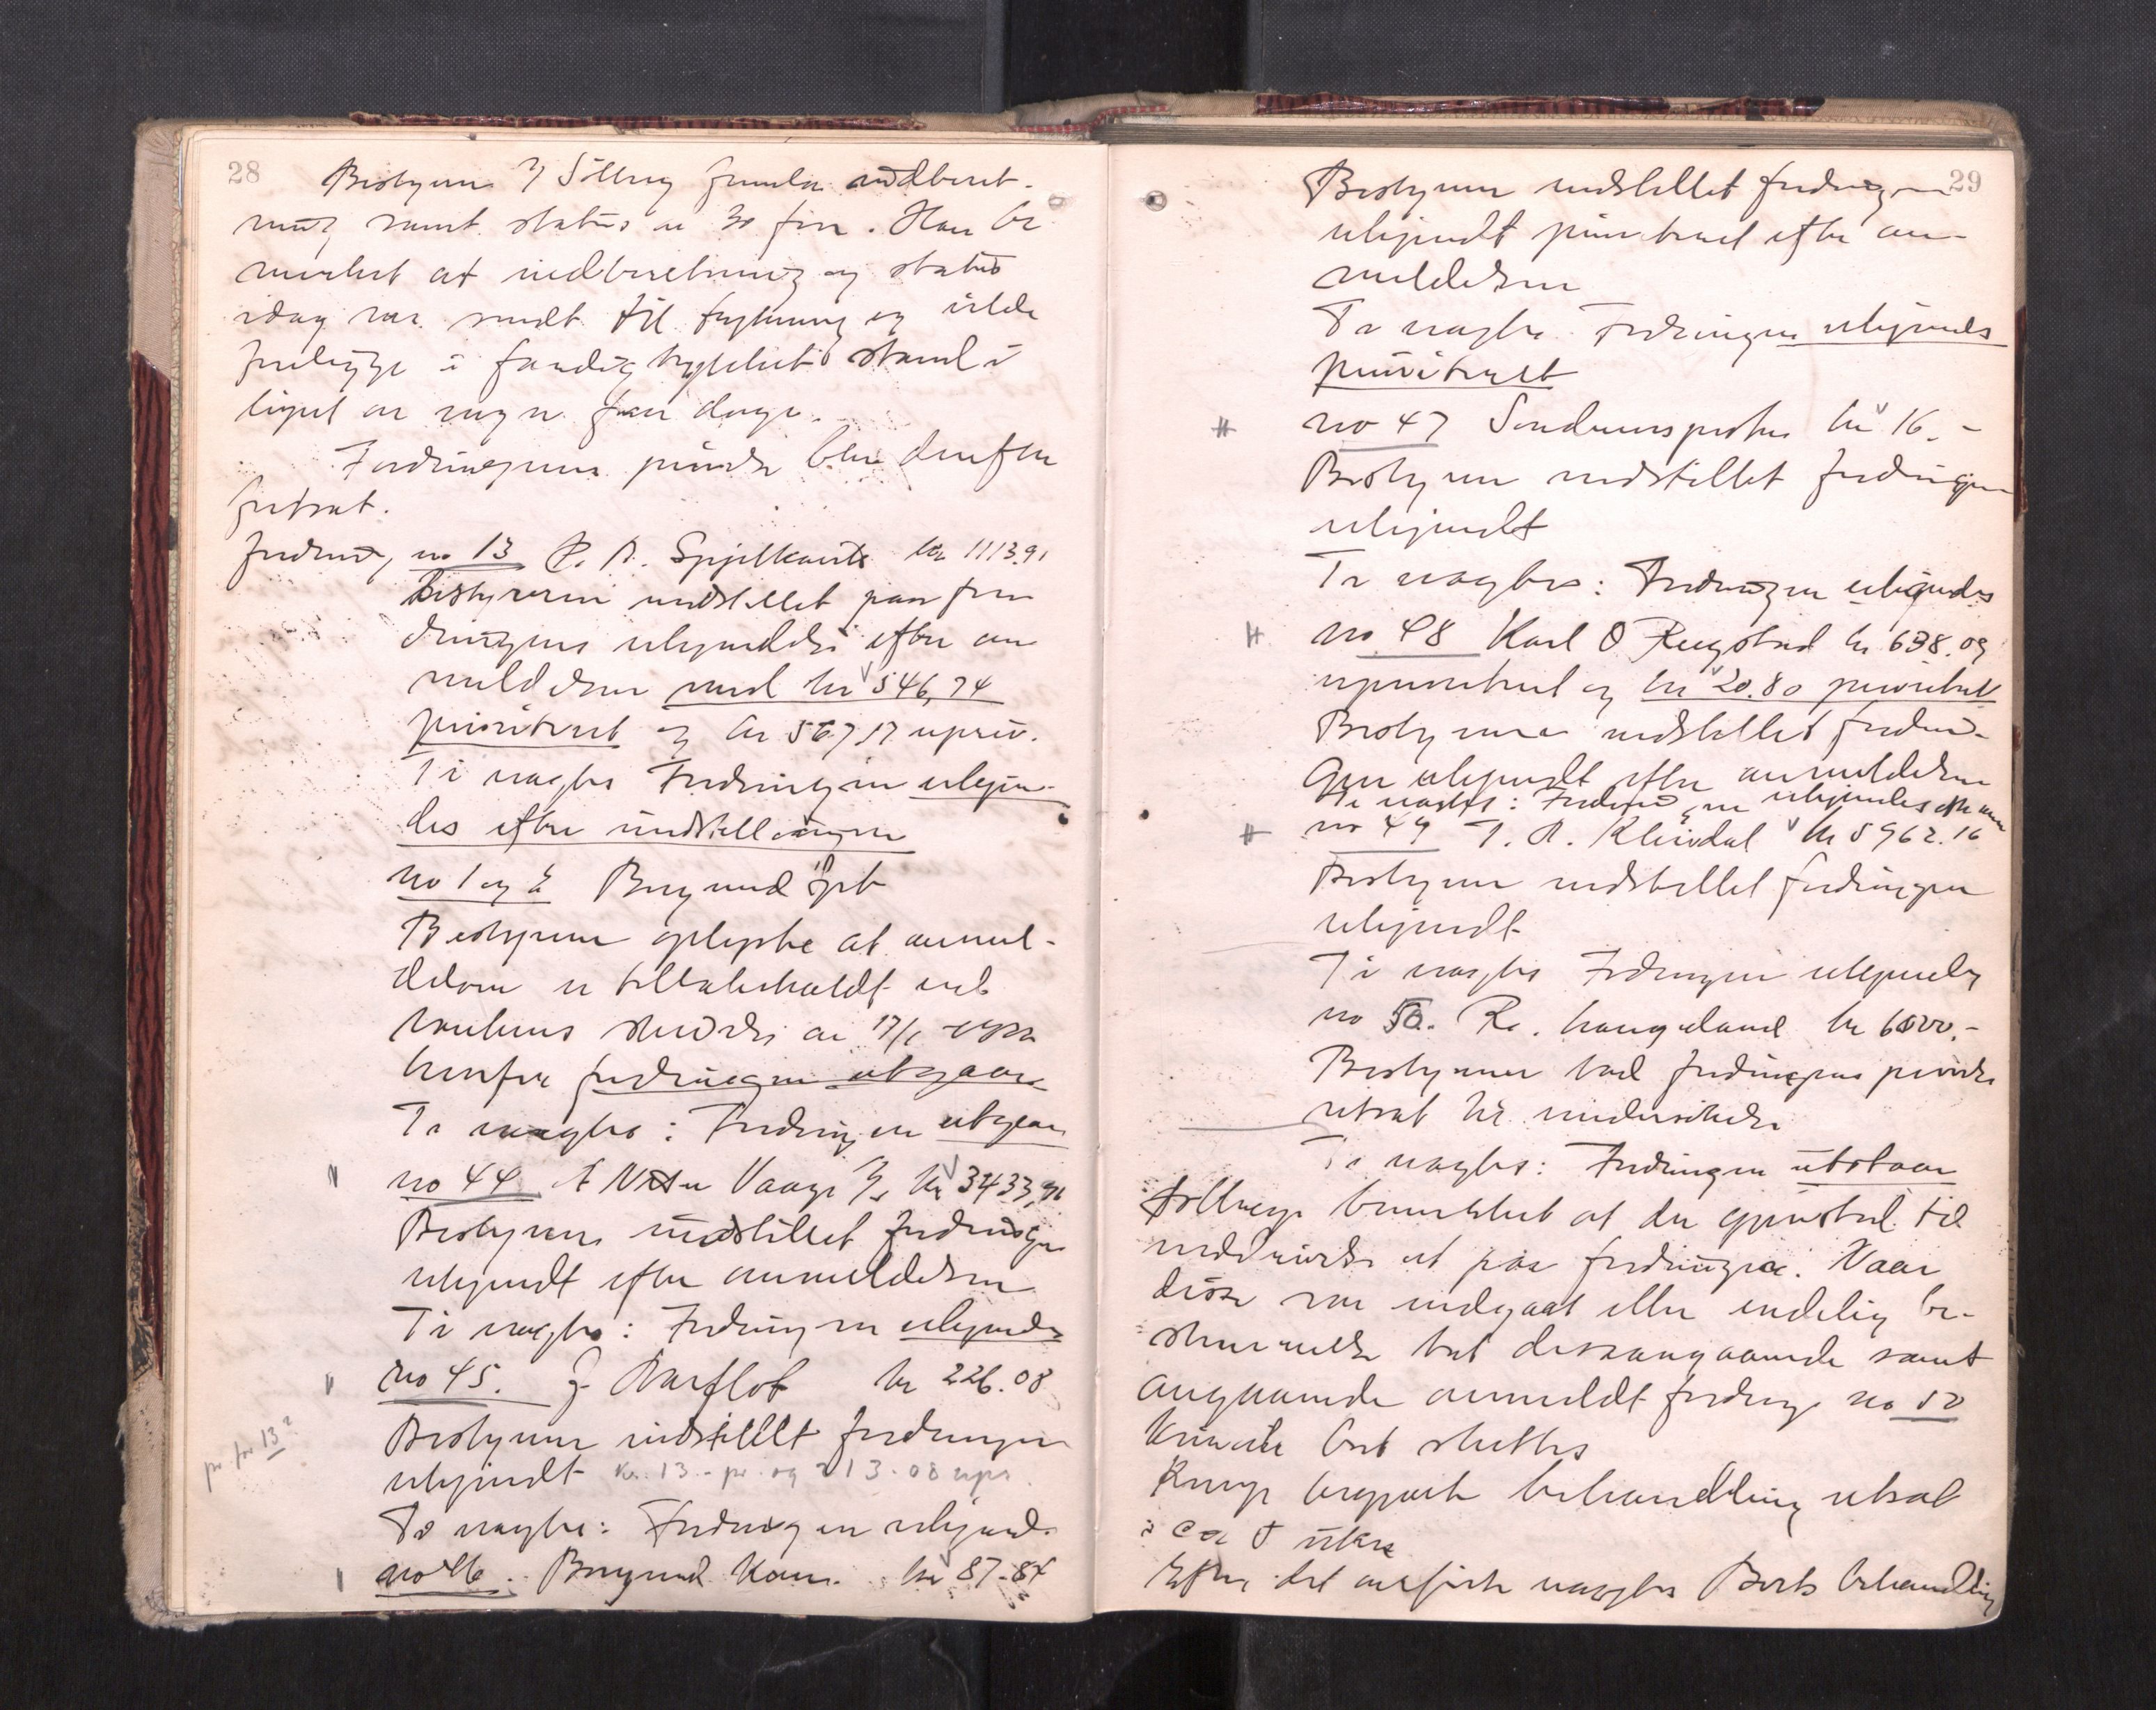 28
Bestyreren Solberg fremla indberet-
ning samt status er 30 frem. Han be
merket at indberetning og status
idag var sendt til trykning og vilde
foreligge i færdig trykket stand i
løpet av nogen faa dage.
Fordringernes prøvelse blev derefter
fortsat.
Fordring no 13 P. A. Spjelkavik kr 1113.91
Bestyreren indstillet paa for
dringens utlignedes efter an
meldelsen med kr 546,74
prioriteret og kr 567 17 upriv.
Ti vagtes Fordringen utlign-
des efter indstillingen
no 1 og 2 Borgund spb
Bestyreren oplyste at anmel-
delsen er tilbakekaldt ved
bankens skrivelse av 17/1
hvorfor fordringen utgaar
Ti vagtes: Fordringen utgaar
no 44 A Vaage kr 3433,76
Bestyreren indstillet fordringen
utlignedt efter anmeldelsen
Ti vagtes: Fordringen utlignedes
no 45. J Aarflot kr 226.08
Bestyreren indstillet fordringen
utlignedt kr. 13.- pr. og 213.08 upr.
pr for 13?
Ti vagtes: Fordringen utligned.
no 46. Borgund Kom. kr 87.84
29
Bestyreren indstillet fordringen
utlignedt prioriteret efter an-
meldelsen
Ti vagtes Fordringen utlignedes
prioriteret
no 47 Søndmørsposten kr 16.-
Bestyreren indstillet fordringen
utlignedt
Ti vagtes: Fordringen utlignedes
no 48 Karl O Ringstad kr 638.09
uprioriteret og kr 20.80 prioritet
Bestyreren indstillet fordrin-
gen utlignedt efter anmeldelsen
Ti vagtes: Fordringen utlignedes efter anm
no 49 T. A. Kleivdal kr 5962.16
Bestyreren indstillet fordringen
utlignedt
Ti vagtes Fordringen utlignedes
no 50. R. Haugeland kr 6000.-
Bestyreren bad fordringens prøvelse
utsat til undersøkelse
Ti vagtes: Fordringen utstaar
Solberg bemerket at der gjenstod til
at paa fordringer. Naar
disse var indgaat eller endelig be-
stemmelse tat desangaaende samt
angaaende anmeldt fordring no 50
kunde boet sluttes
behandling utsat
i ca 8 uker
Efter det anførte vagtes Boets behandling